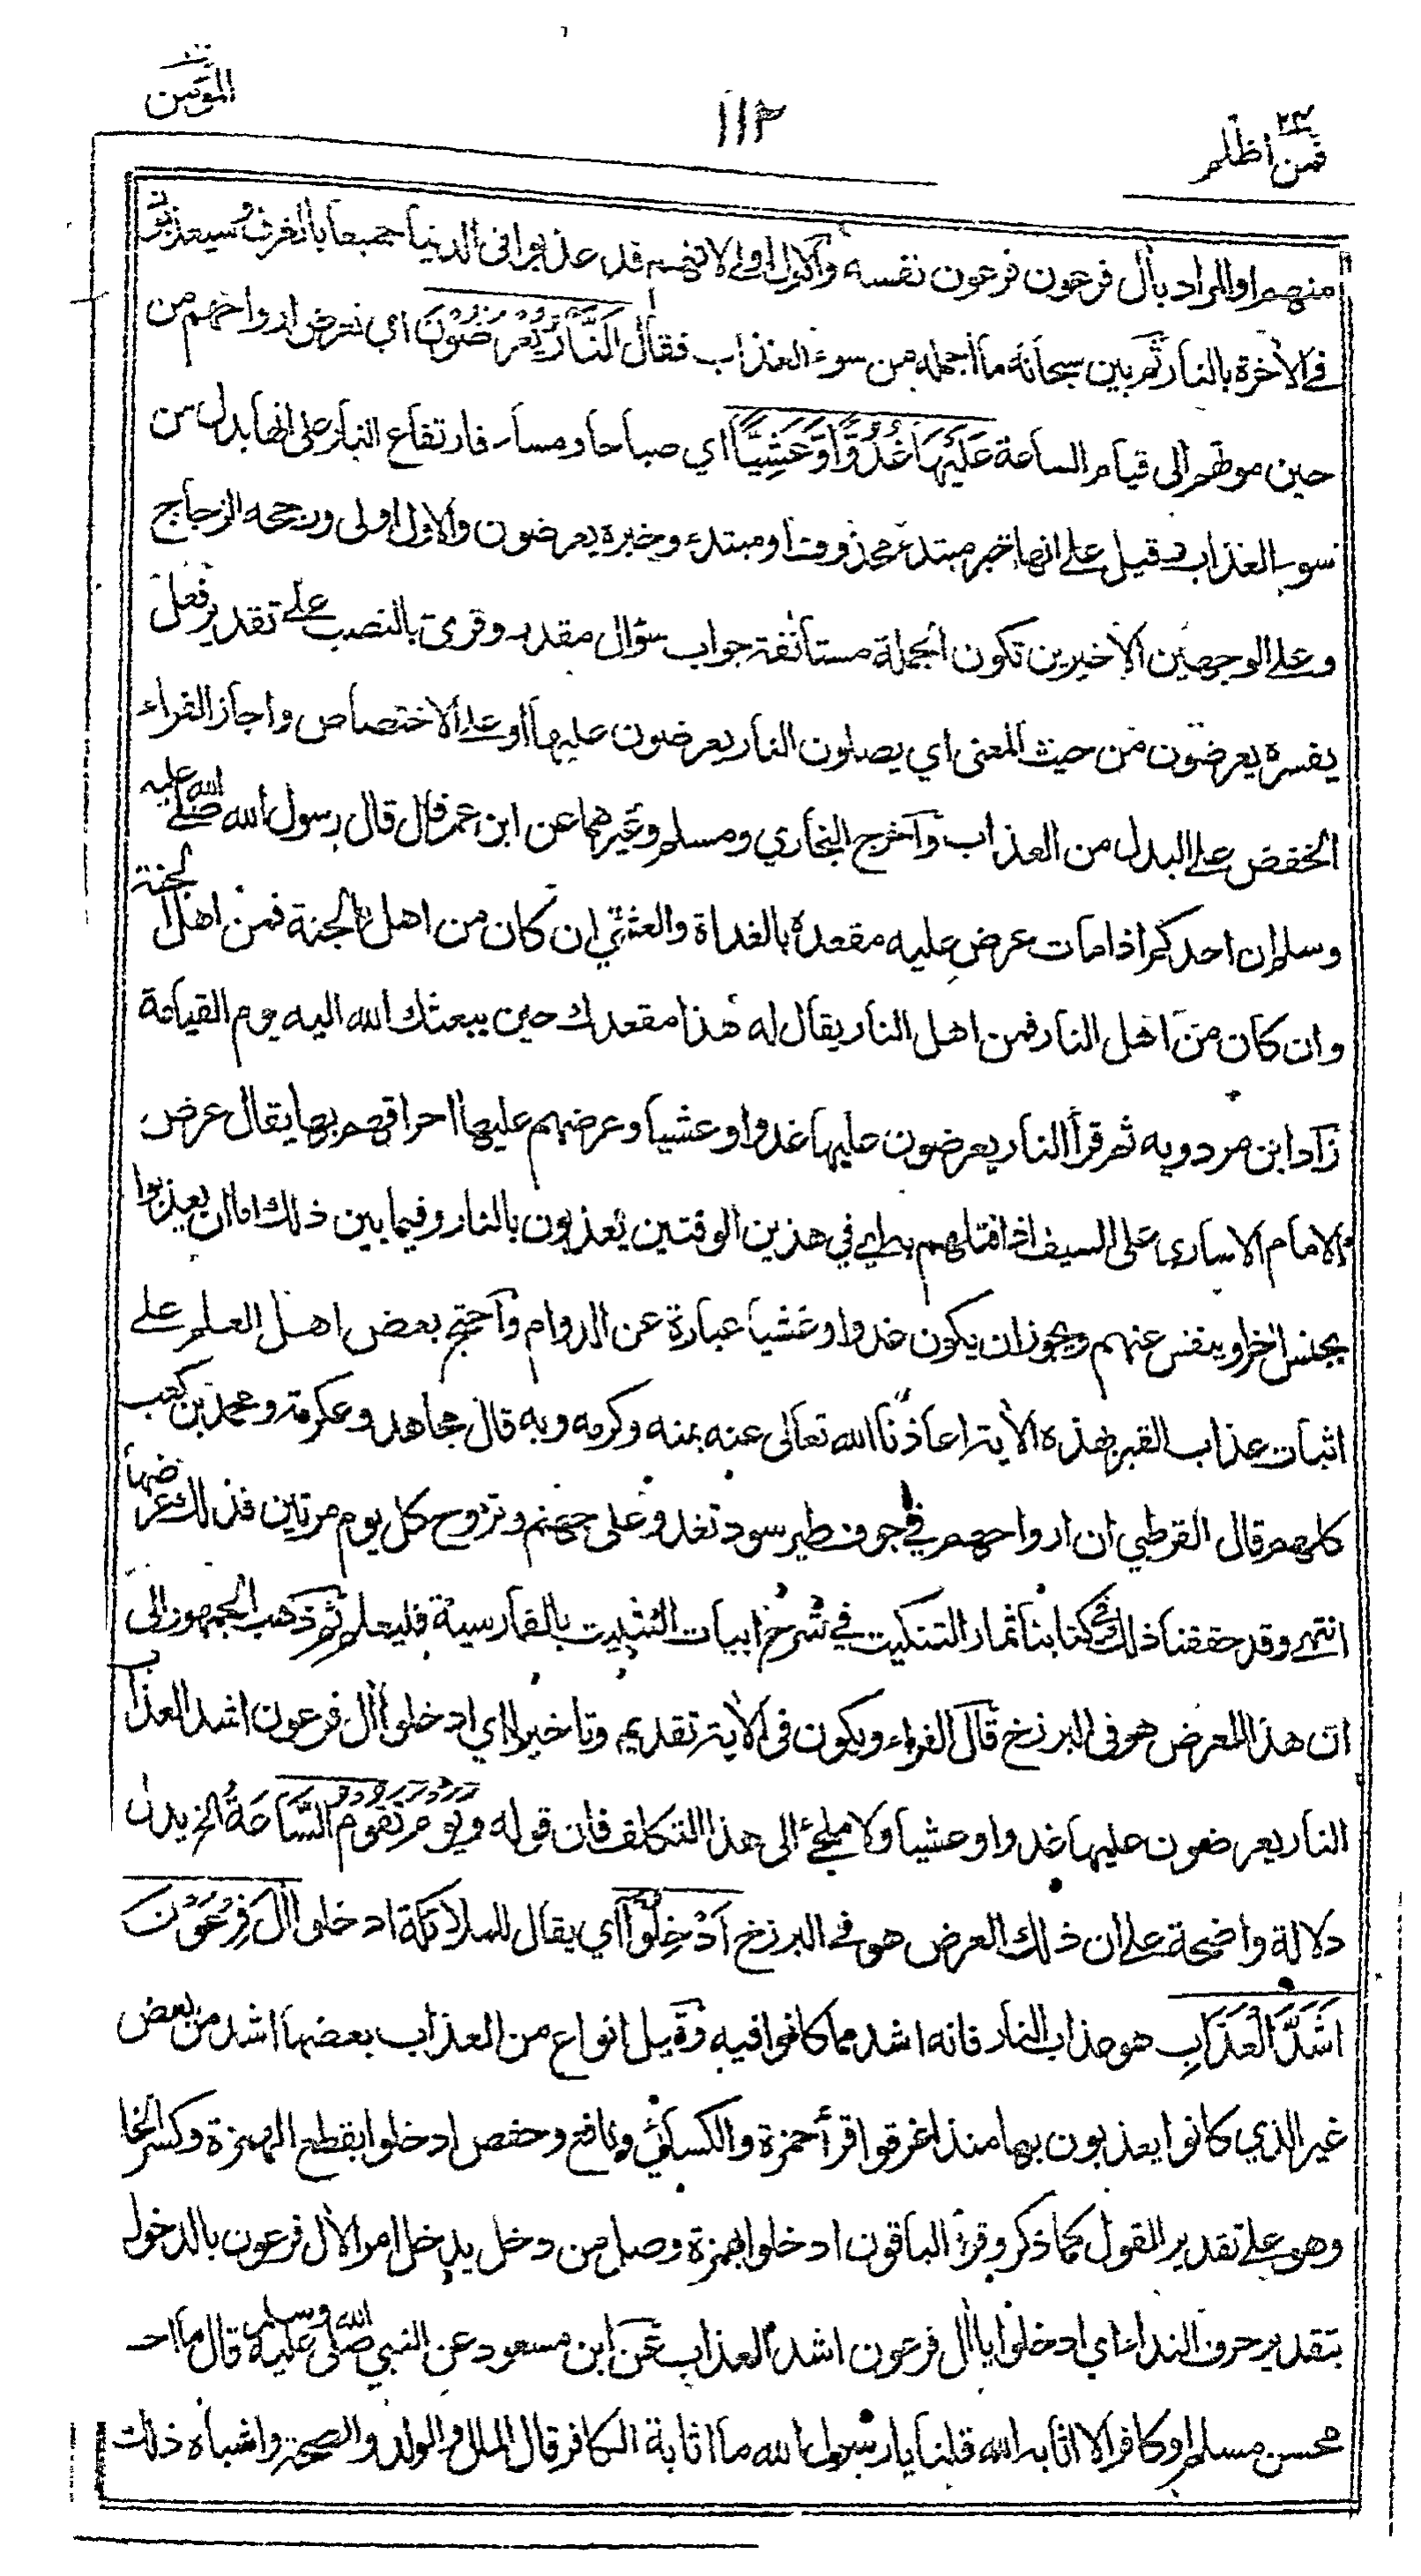 المؤمن
١١٢
٢٤
فمن اظلم
منهم او المراد بأل فرعون فرعون نفسه والاول اولى لانهم قد عذبوا في الدنيا جميعا بالغرق وسيعذبون
في الأخرة بالنار ثم بين سبحانه ما اجمله من سوء العذاب فقال اَلنَّارُ يُعْرَضُوْنَ اي تعرض ارواحهم من
حين موتهم الى قيام الساعة عَلَيْهَا غُدُوًّا وَّعَشِيًّا اي صباحا ومساء فارتفاع النار على انها بدل من
سوء العذاب وقيل على انها خبر مبتدء محذوف او مبتدء وخبره يعرضون والاول اولى ورجحه الزجاج
وعلى الوجهين الاخيرين تكون الجملة مستأنفة جواب سؤال مقدر وقرئ بالنصب على تقدير فعل
يفسره يعرضون من حيث المعنى اي يصلون النار يعرضون عليها او على الاختصاص واجاز الفراء
الخفض على البدل من العذاب وآخرج البخاري ومسلم وغيرهما عن ابن عمر قال قال رسول الله صلى الله عليه
وسلم ان احدكم اذا مات عرض عليه مقعده بالغداة والعشي ان كان من اهل الجنة فمن اهل الجنة
وان كان من اهل النار فمن اهل النار يقال له هذا مقعدك حين يبعثك الله اليه يوم القيامة
زاد ابن مردويه ثم قرأ النار يعرضون عليها غدوا وعشيا وعرضهم عليها احراقهم بها يقال عرض
الامام الاسارى على السيف اذا قتلهم به اي في هذين الوقتين يعذبون بالنار وفيما بين ذلك اما ان يعذبوا
بجنس اخر او ينفس عنهم ويجوز ان يكون غدوا وعشيا عبارة عن الدوام وآحتج بعض اهل العلم على
اثبات عذاب القبر بهذه الأية اعاذنا الله تعالى عنه بمنه وكرمه وبه قال مجاهد وعكرمة ومحمد بن كعب
كلهم قال القرطبي ان ارواحهم في جوف طير سود تغدو على جهنم وتروح كل يوم مرتين فذلك عرضها
انتهى وقد حققنا ذلك في كتابنا ثمار التنكيت في شرح ابيات التثبيت بالفارسية فليعلم ثم ذهب الجمهور الى
ان هذا العرض هو في البرزخ قال الفراء ويكون في الأية تقديم وتاخير اي ادخلوا أل فرعون اشد العذاب
النار يعرضون عليها غدوا وعشيا ولا ملجئ الى هذا التكلف فان قوله وَيَوْمَ تَقُوْمُ السَّاعَةُ الخ يدل
دلالة واضحة على ان ذلك العرض هو في البرزخ اَدْخِلُوْٓا اي يقال للملائكة ادخلوا أٰلَ فِرْعَوْنَ
اَشَدَّ الْعَذَابِ هو عذاب النار فانه اشد مما كانوا فيه وقيل انواع من العذاب بعضها اشد من بعض
غير الذي كانوا يعذبون بها منذ اغرقوا قرأ حمزة والكسائي ونافع وحفص ادخلوا بقطع الهمزة وكسر الخا
وهو على تقدير القول كما ذكر وقرأ الباقون ادخلوا بهمزة وصل من دخل يدخل امرا لأل فرعون بالدخول
بتقدير حرف النداء اي ادخلوا يا أل فرعون اشد العذاب عن ابن مسعود عن النبي صلى الله عليه وسلم قال ما احـ
محسن مسلم او كافر الا اثابه الله قلنا يا رسول الله ما اثابة الكافر قال المال والولد والصحة واشباه ذلك